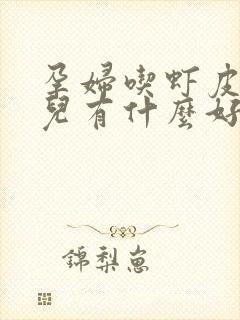 孕婦喫虾皮
兒有什麼好
錦梨崽